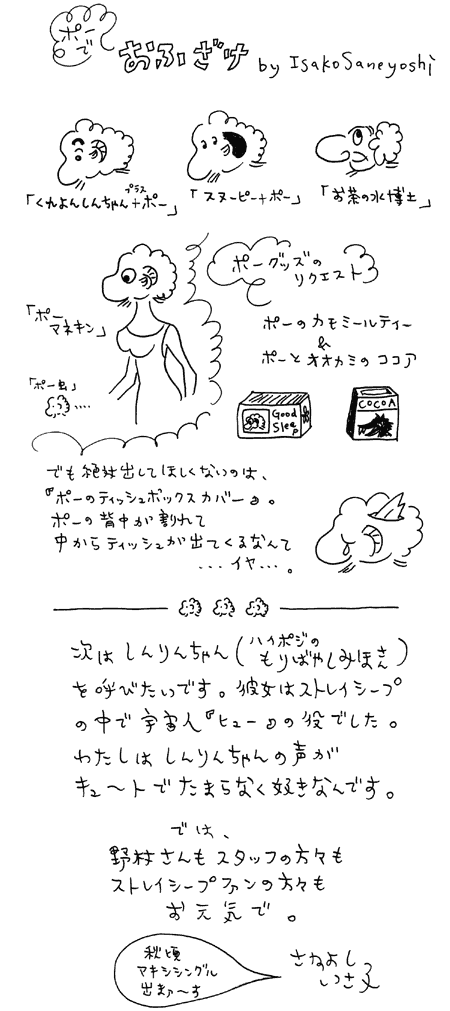 ポーで
おふざけ by Isako Saneyoshi
「くれよんしんちゃん+ポー」
プラス
「スヌーピー+ポー」
「お茶の水博士」
ポーグッズの
リクエスト
「ポー
マネキン」
ポーのカモミールティー
&
ポーとオオカミのココア
「ポー虫」
....
Good
Sleep
COCOA
でも絶対出してほしくないのは、
『ポーのティッシュボックスカバー』。
ポーの背中が割れて
中からティッシュが出てくるなんて
...イヤ...。
次はしんりんちゃん(ハイポジの
もりばやしみほさん)
を呼びたいです。彼女はストレイシープ
の中で宇宙人『ヒュー』の役でした。
わたしはしんりんちゃんの声が
キュ〜トでたまらなく好きなんです。
では、
野村さんもスタッフの方々も
ストレイシープファンの方々も
お元気で。
秋頃
マキシシングル
出まァ〜す
さねよし
いさ子